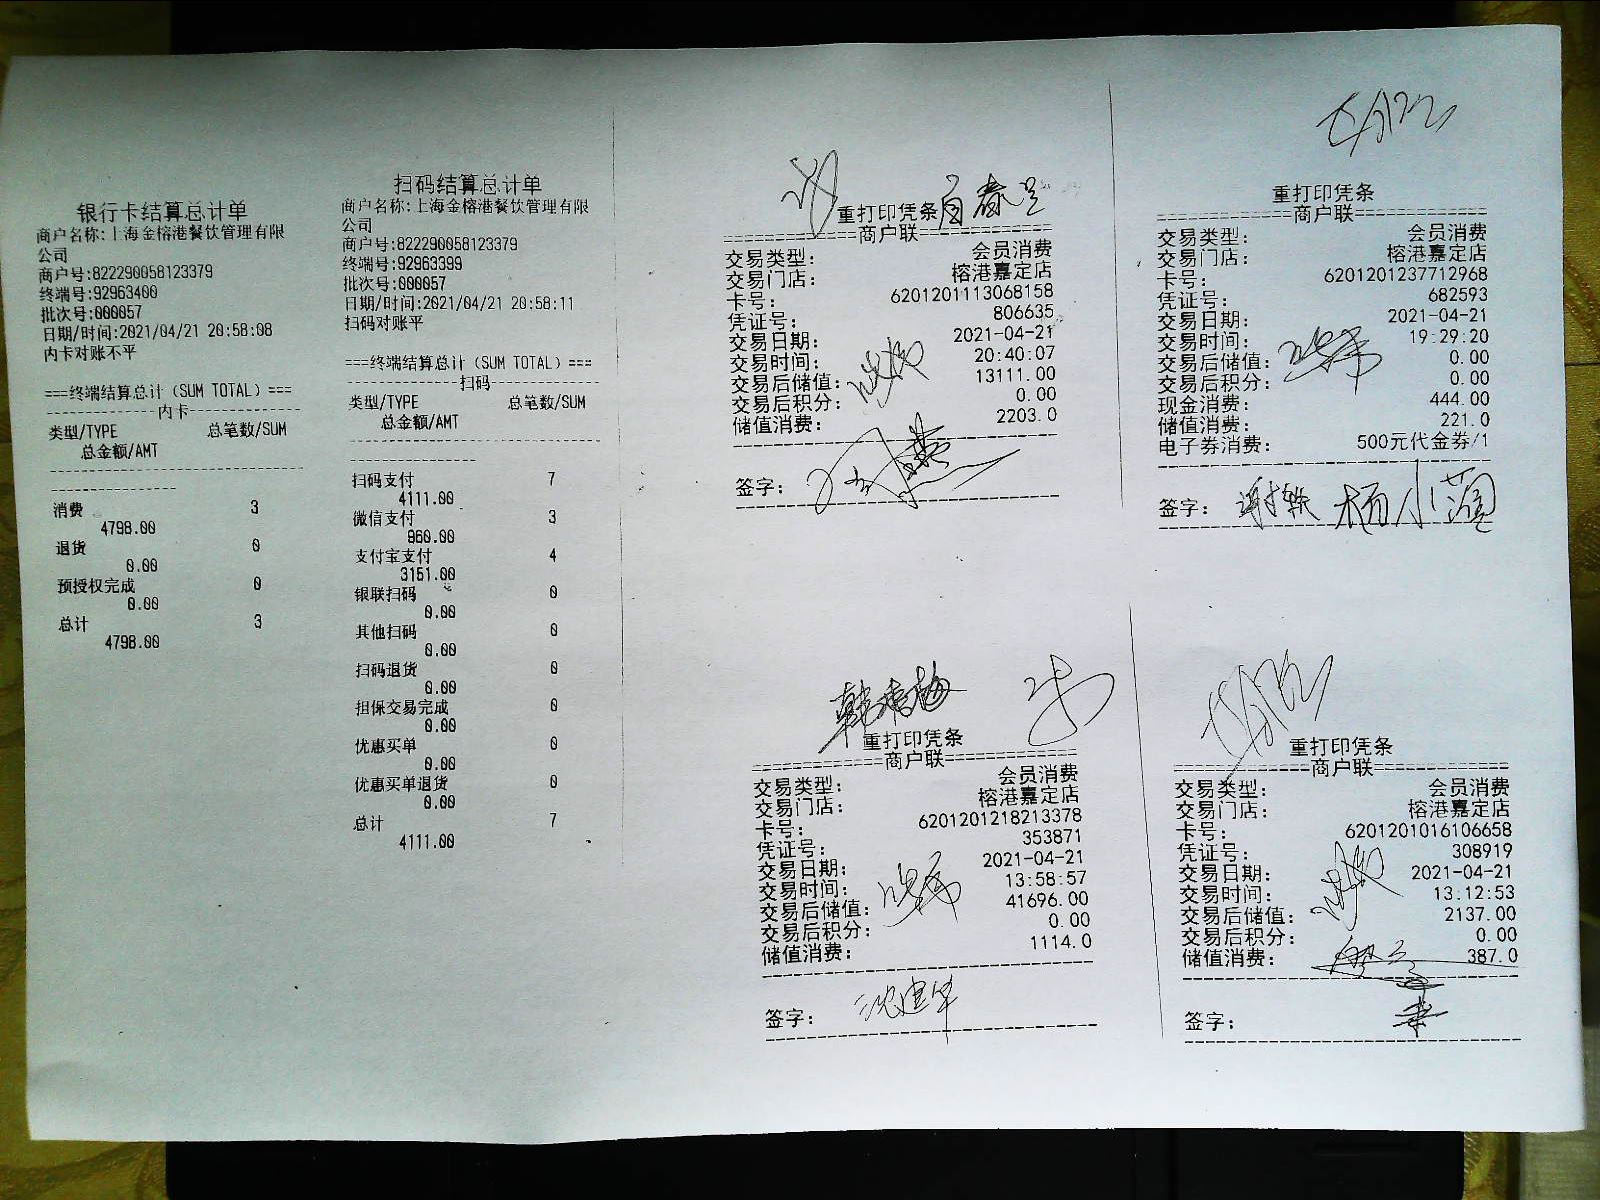 银行卡结算总计单
商户名称:上海金榕港餐饮管理有限
公司
商户号:822290058123379
终端号:92963400
批次号:000057
日期/时间:2021/04/21 20:58:08
内卡对账不平
===终端结算总计（SUM TOTAL）===
---------------内卡---------------
类型/TYPE 总笔数/SUM
总金额/AMT
消费 3
4798.00
退货 0
0.00
预授权完成 0
0.00
总计 3
4798.00
扫码结算总计单
商户名称:上海金榕港餐饮管理有限
公司
商户号:822290058123379
终端号:92963399
批次号:000057
日期/时间:2021/04/21 20:58:11
扫码对账平
===终端结算总计（SUM TOTAL）===
---------------扫码---------------
类型/TYPE 总笔数/SUM
总金额/AMT
扫码支付 7
4111.00
微信支付 3
960.00
支付宝支付 4
3151.00
银联扫码 0
0.00
其他扫码 0
0.00
扫码退货 0
0.00
担保交易完成 0
0.00
优惠买单 0
0.00
优惠买单退货 0
0.00
总计 7
4111.00
重打印凭条
============商户联============
交易类型: 会员消费
交易门店: 榕港嘉定店
卡号: 6201201113068158
凭证号: 806635
交易日期: 2021-04-21
交易时间: 20:40:07
交易后储值: 13111.00
交易后积分: 0.00
储值消费: 2203.0
签字:
重打印凭条
============商户联============
交易类型: 会员消费
交易门店: 榕港嘉定店
卡号: 6201201237712968
凭证号: 682593
交易日期: 2021-04-21
交易时间: 19:29:20
交易后储值: 0.00
交易后积分: 0.00
现金消费: 444.00
储值消费: 221.0
电子券消费: 500元代金券/1
签字:
重打印凭条
============商户联============
交易类型: 会员消费
交易门店: 榕港嘉定店
卡号: 6201201218213378
凭证号: 353871
交易日期: 2021-04-21
交易时间: 13:58:57
交易后储值: 41696.00
交易后积分: 0.00
储值消费: 1114.0
签字: 沈建华
重打印凭条
============商户联============
交易类型: 会员消费
交易门店: 榕港嘉定店
卡号: 6201201016106658
凭证号: 308919
交易日期: 2021-04-21
交易时间: 13:12:53
交易后储值: 2137.00
交易后积分: 0.00
储值消费: 387.0
签字: